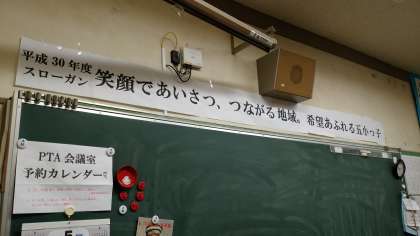 平成30年度
スローガン 笑顔であいさつ、つながる地域。希望あふれる五小っ子
PTA会議室
予約カレンダー
5